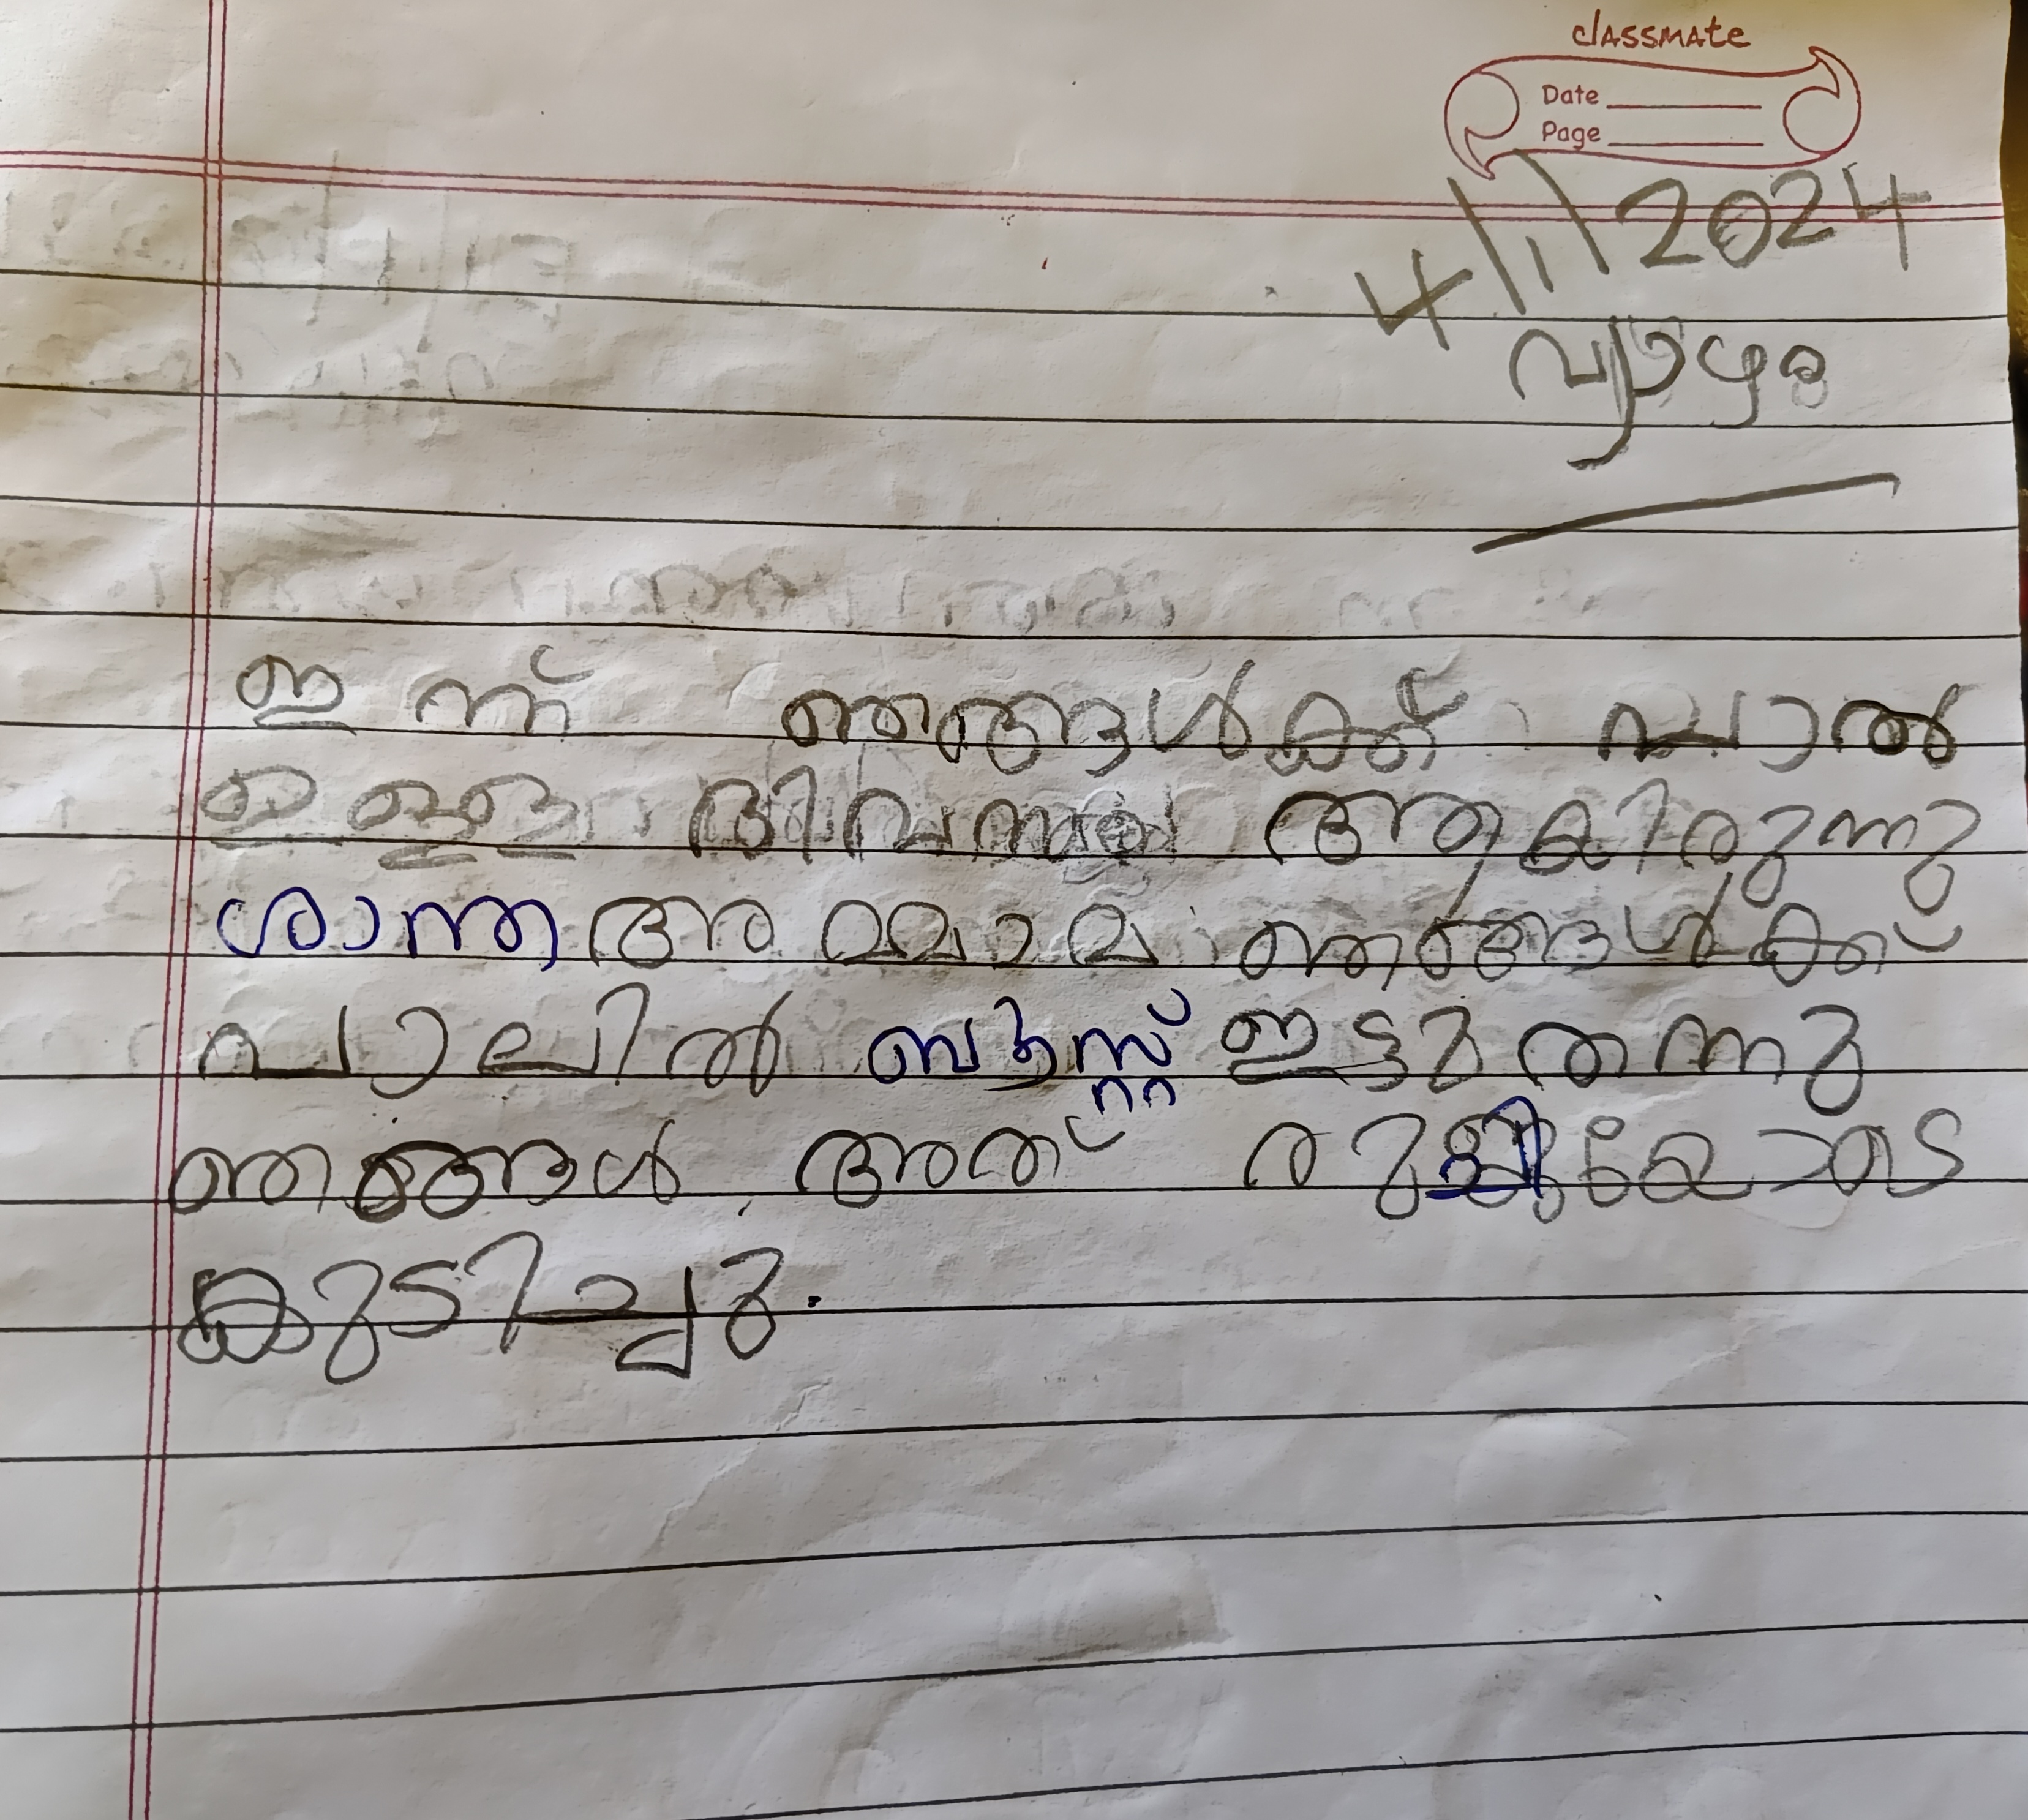 classmate
Date
Page
4/1/2024
വ്യാഴം
ഇന്ന് ഞങ്ങൾക്ക് പാൽ
ഉള്ള ദിവസം ആകിരുന്നു
ശാന്ത അമ്മാമ ഞങ്ങൾക്ക്
പാലിൽ ബൂസ്റ്റ് ഇട്ടു തന്നു
ഞങ്ങൾ അത് രുചിയോടെ
കുടിച്ചു.